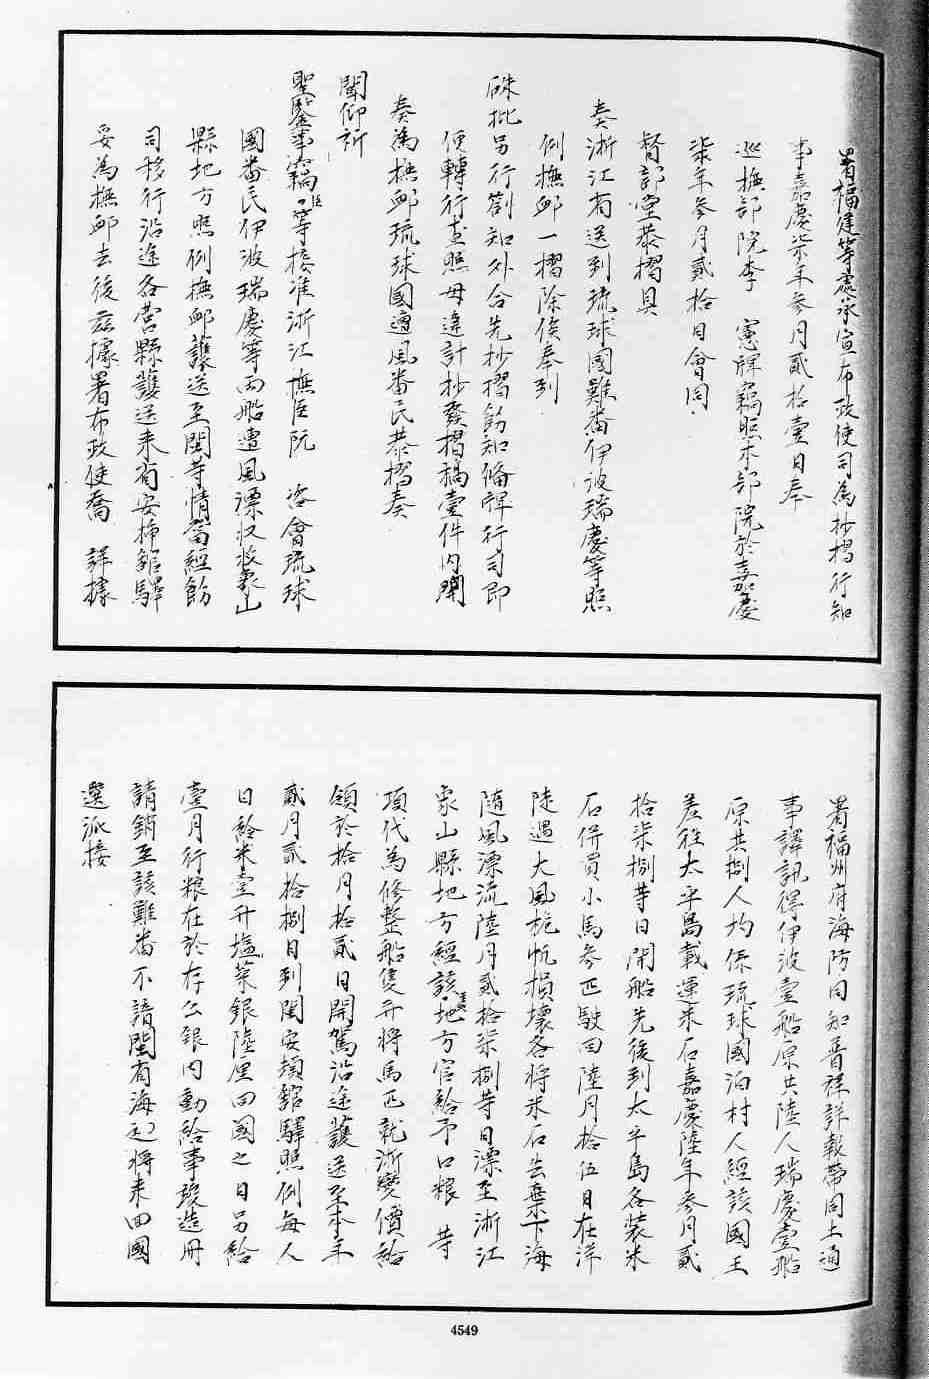 署福建等處承宣布政使司為抄摺行知
事嘉慶柒年參月貳拾壹日奉
巡撫部院李 憲牌竊照本部院於嘉慶
柒年參月貳拾日會同
督部堂恭摺具
奏浙江省送到琉球國難番伊波瑞慶等照
例撫卹一摺除俟奉到
硃批另行劄知外合先抄摺飭知備牌行司即
便轉行查照毋違計抄發摺稿壹件內開
奏為撫卹琉球國遭風番民恭摺奏
聞仰祈
聖鑒事竊臣等接准浙江撫臣阮 咨會琉球
國番民伊波瑞慶等兩船遭風漂收象山
縣地方照例撫卹護送至閩等情當經飭
司移行沿途各營縣護送來省安插館驛
妥為撫卹去後茲據署布政使喬 詳據
署福州府海防同知晋祥詳報帶同土通
事譯訊得伊波壹船原共陸人瑞慶壹船
原共捌人均係琉球國泊村人經該國王
差往太平島載運米石嘉慶陸年參月貳
拾柒捌等日開船先後到太平島各裝米
石併買小馬參匹駛回陸月拾伍日在洋
陡遇大風桅帆損壞各將米石丟棄下海
隨風漂流陸月貳拾柒捌等日漂至浙江
象山縣地方經該地方官給予口粮 等
項代為修整船隻并將馬匹就浙變價給
領於拾月拾貳日開駕沿途護送至本年
貳月貳拾捌日到閩安頓館驛照例每人
日給米壹升塩菜銀陸厘回國之日另給
壹月行粮在於存公銀內動給事竣造冊
請銷至該難番不諳閩省海道將來回國
選派接